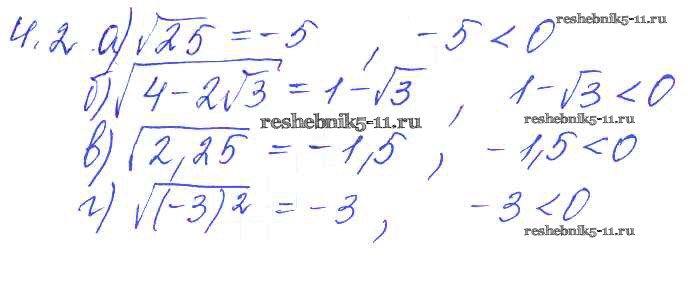 reshebnik5-11.ru
4.2 а) √25 = -5 , -5 < 0
б) √(4 - 2√3) = 1 - √3 , 1 - √3 < 0
reshebnik5-11.ru reshebnik5-11.ru
в) √2,25 = -1,5 , -1,5 < 0
г) √(-3)² = -3 , -3 < 0
reshebnik5-11.ru